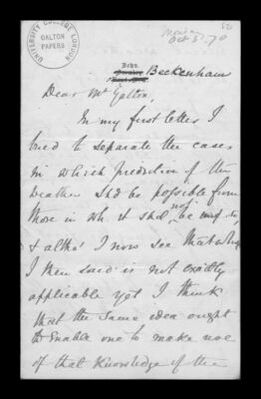 UNIVERSITY COLLEGE LONDON
GALTON
PAPERS
Oct 5. 70
Beckenham
Dear Mr Galton,
In my first letter I
tried to separate the cases
in which prediction of the
weather shd be possible from
those in wh it shd not be
& altho' I now see that what
I then said is not exactly
applicable yet I think
that the same idea ought
to enable one to make use
of that knowledge of the